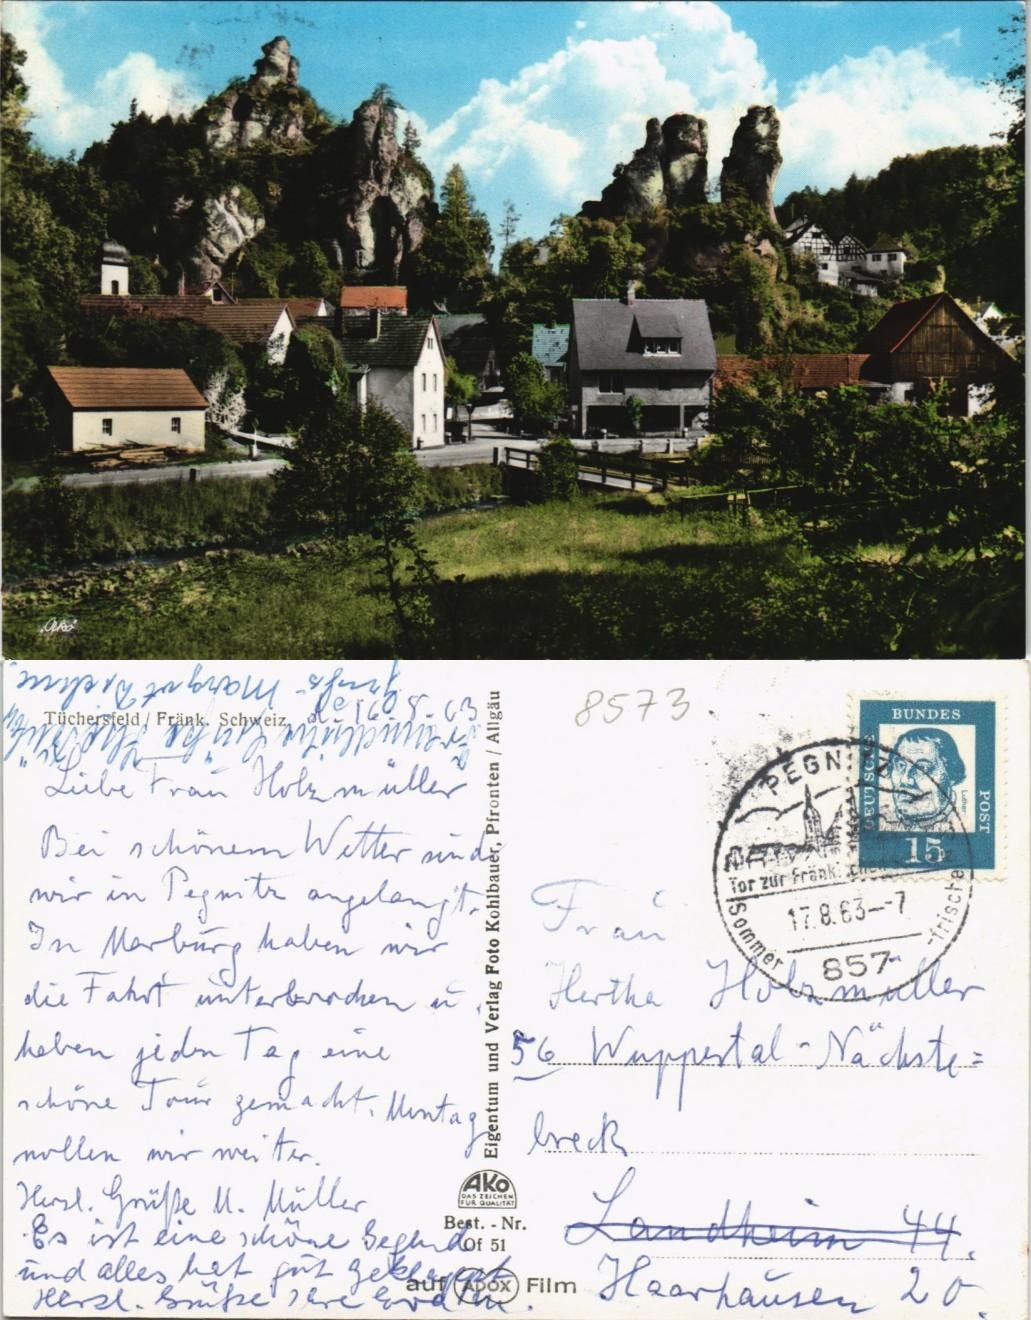 "Ako"
Tüchersfeld / Fränk. Schweiz
16.8.63
Liebe Frau Holzmüller
Bei schönem Wetter sind
wir in Pegnitz angelangt.
In Marburg haben wir
die Fahrt unterbrochen u.
haben jeden Tag eine
schöne Tour gemacht. Montag
wollen wir weiter.
Herzl. Grüße M. Müller
Es ist eine schöne Gegend
und alles hat gut geklappt
Herzl. Grüße Ihre
Freundliche
Grüße Margret
Eigentum und Verlag Foto Kohlbauer, Pfronten / Allgäu
AKO
DAS ZEICHEN
FÜR QUALITÄT
Best. - Nr.
Of 51
auf ADOX Film
8573
DEUTSCHE
BUNDES
POST
Luther
15
PEGNITZ
Tor zur Fränk.
17.8.63--7
Sommer
-frische
857
Frau
Hertha Holzmüller
56 Wuppertal-Nächste=
breck
Landheim 44.
Haarhausen 20.